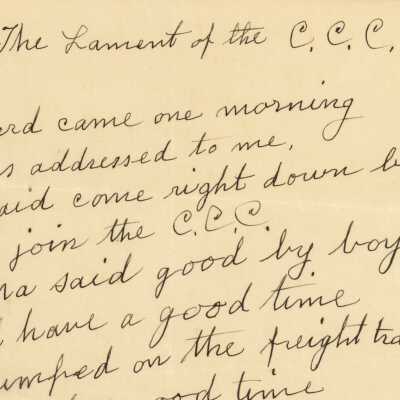 The Lament of the C.C.C.
came one morning
addressed to me,
said come right down
join the C.C.C.
said good by boy
have a good time
on the freight
good time